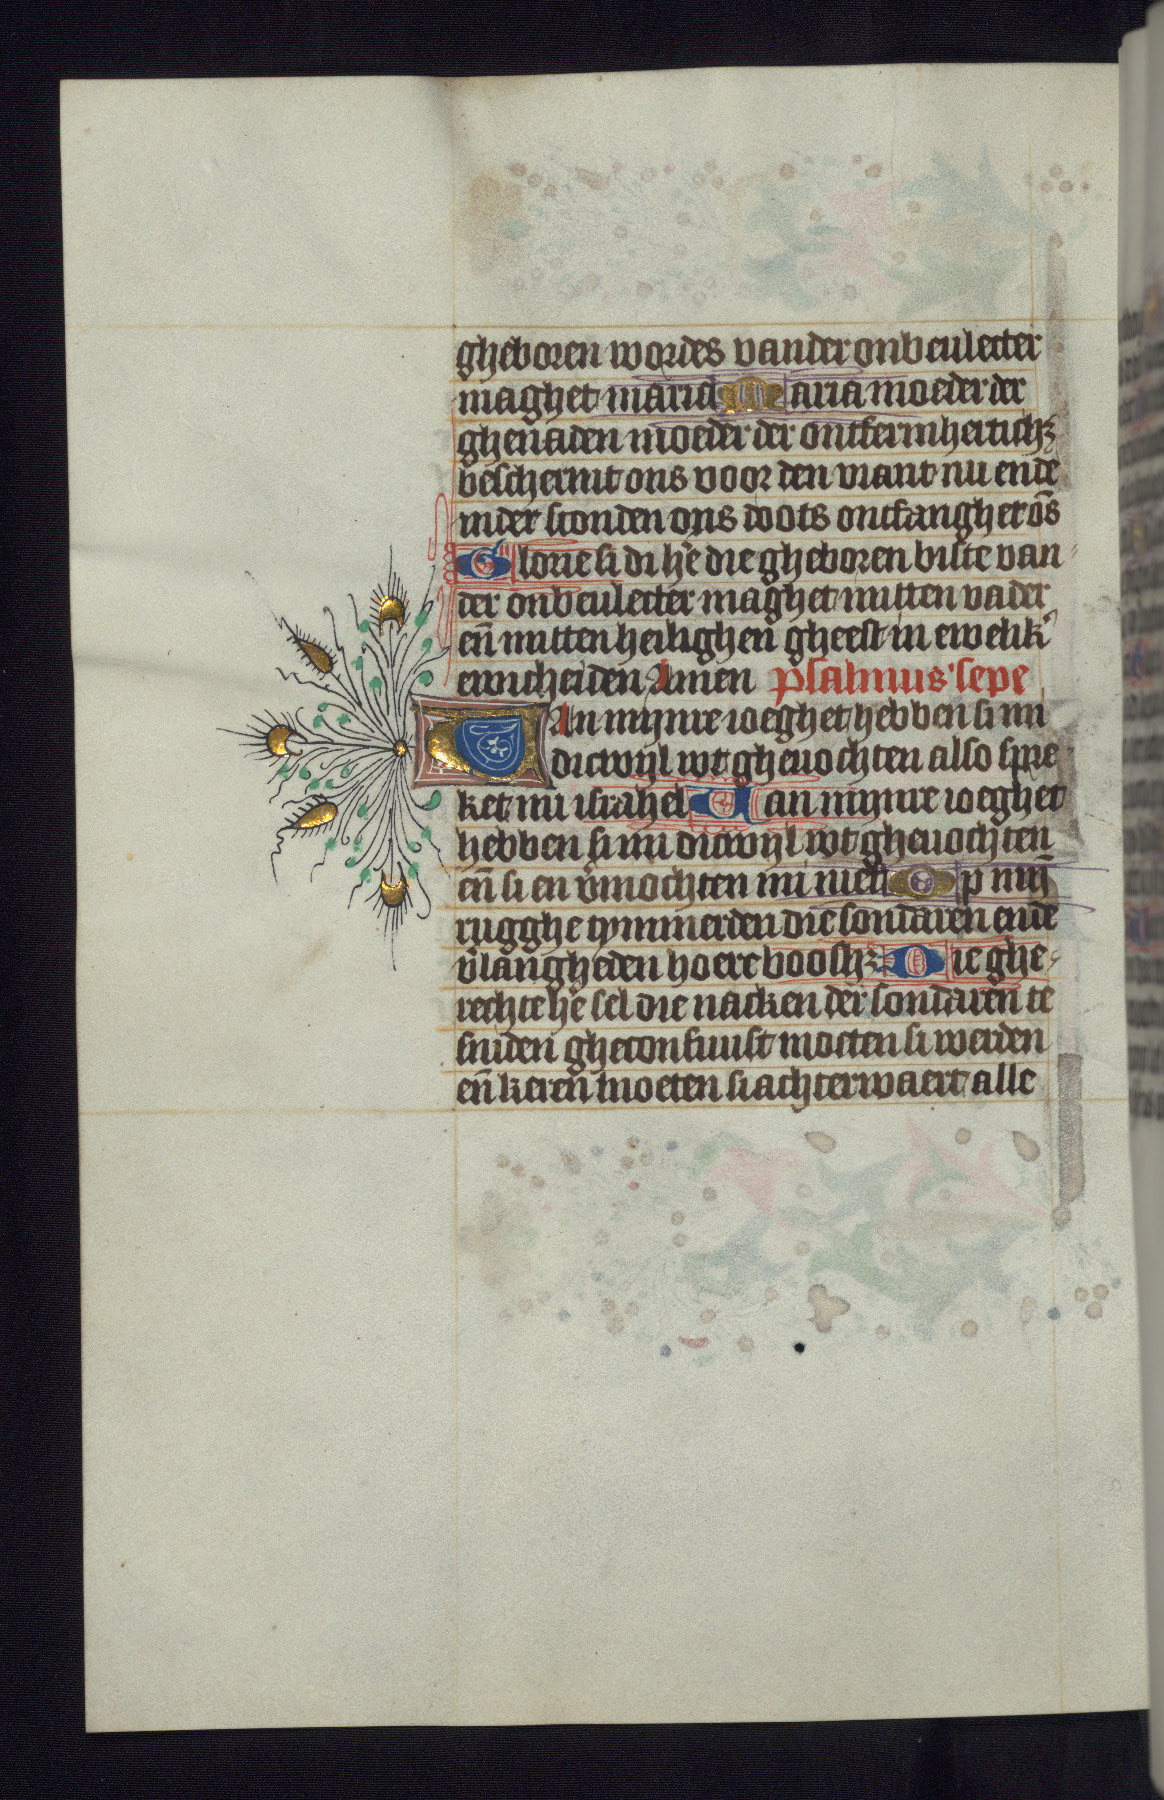 gheboren wordes vander onbeulecter
maghet maria Maria moeder der
ghenaden moeder der ontfermhertichꝫ
beschermt ons voor den viant nu ende
inder stonden ons doots ontfanghet os̄
Glorie si di he̅ die gheboren biste van
der onbeulecter maghet mitten vader
en̄ mitten heilighen gheest in ewelik̉
ewicheiden Amen Psalmus sepe
VAn mijnre ioeghet hebben si mi
dicwijl wt gheuochten also spre
ket nu israhel Van mijnre ioeghet
hebben si mi dicwijl wt gheuochten
en̄ si en v̄mochten mi niet Op mijn̄
rugghe tymmerden die sondaren ende
v̄langheden hoere boosħꝫ Die ghe
rechte he̅ sel die nacken der sondaren te
sniden gheconfuust moeten si werden
en̄ keren moeten si achterwaert alle